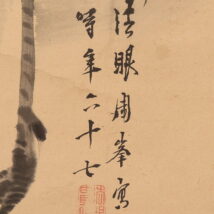 法眼周峯写
時年六十七